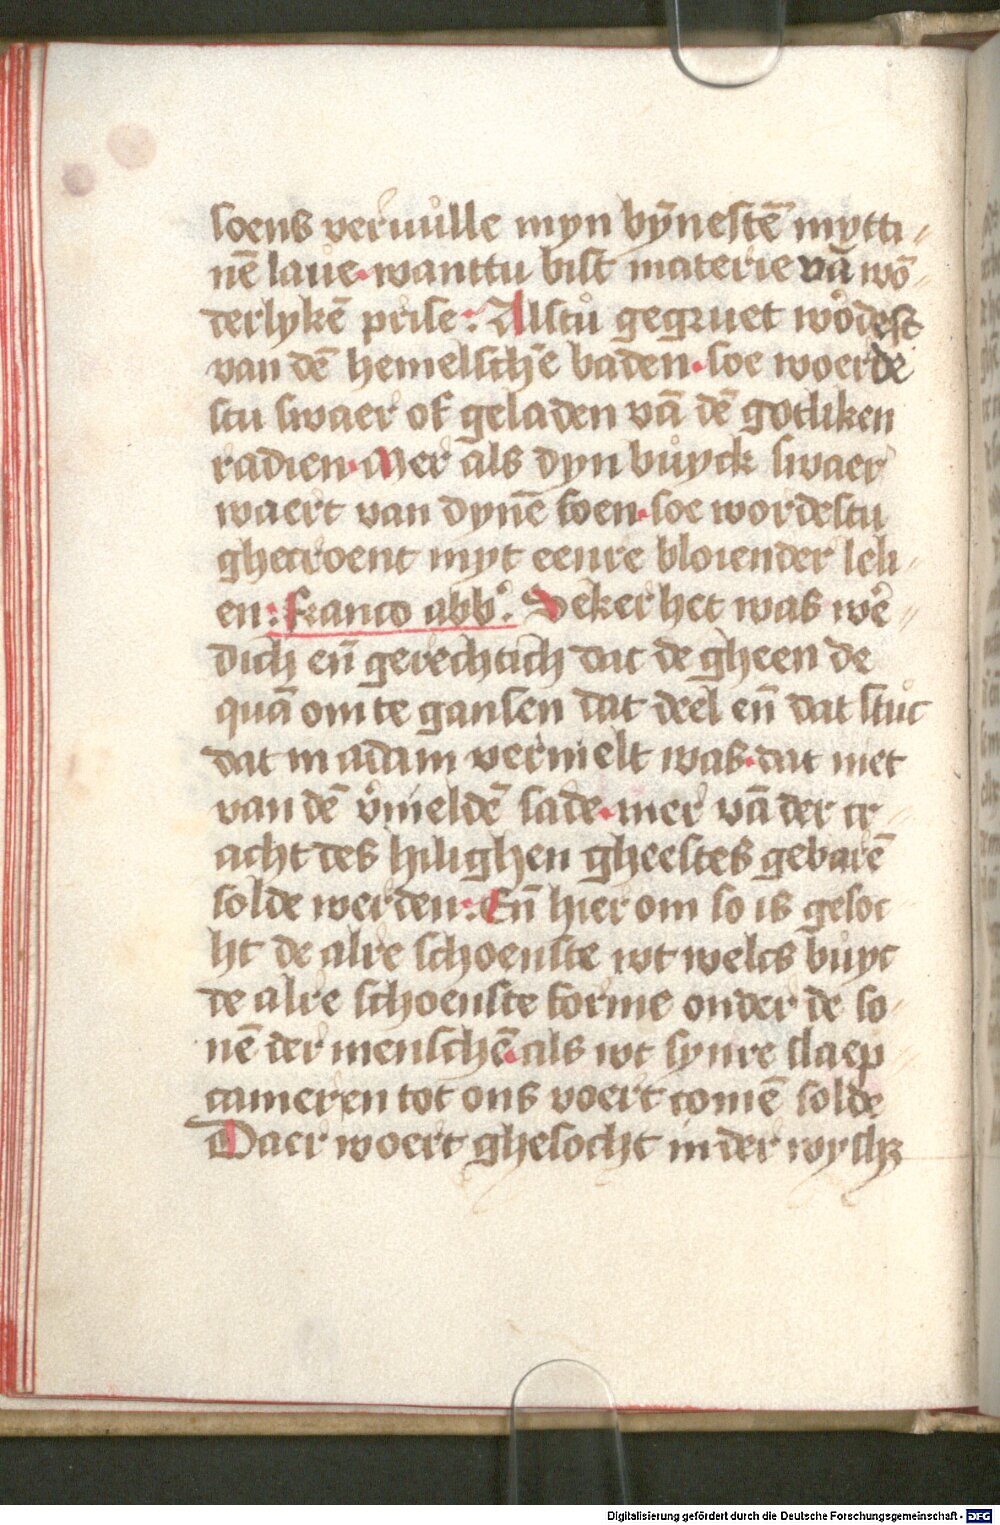 soens vervůlle myn bȳnestē mytti⸗
nē laue. wanttu bist materie vā wō⸗
derlykē prise: Alstů gegruet wo᷒dest
van dē hemelschē baden. soe woerde
stu swaer of geladen vā dē gotliken
radien. Mer als dyn bůyck swaer
waert van dynē soen. soe wordestu
ghecroent myt eenre bloiender leli⸗
en: franco abb᷒. Seker het was we᷒⸗
dich en̄ gerechtich dat de gheen de
quā om te gansen dat deel en̄ dat stůc
dat in adam vernielt was. dat niet
van dē v᷒nieldē sade. mer vā der cr⸗
acht des hilighen gheestes gebarē
solde werden: En̄ hier om so is gesoc⸗
ht de alre schoenste wt welcs bůyc
de alre schoenste forme onder de so⸗
nē der menschē. als wt synre slaep⸗
cameren tot ons voert comē solde
Daer woert ghesocht in der wysh᷒
Digitalisierung gefördert durch die Deutsche Forschungsgemeinschaft - DFG